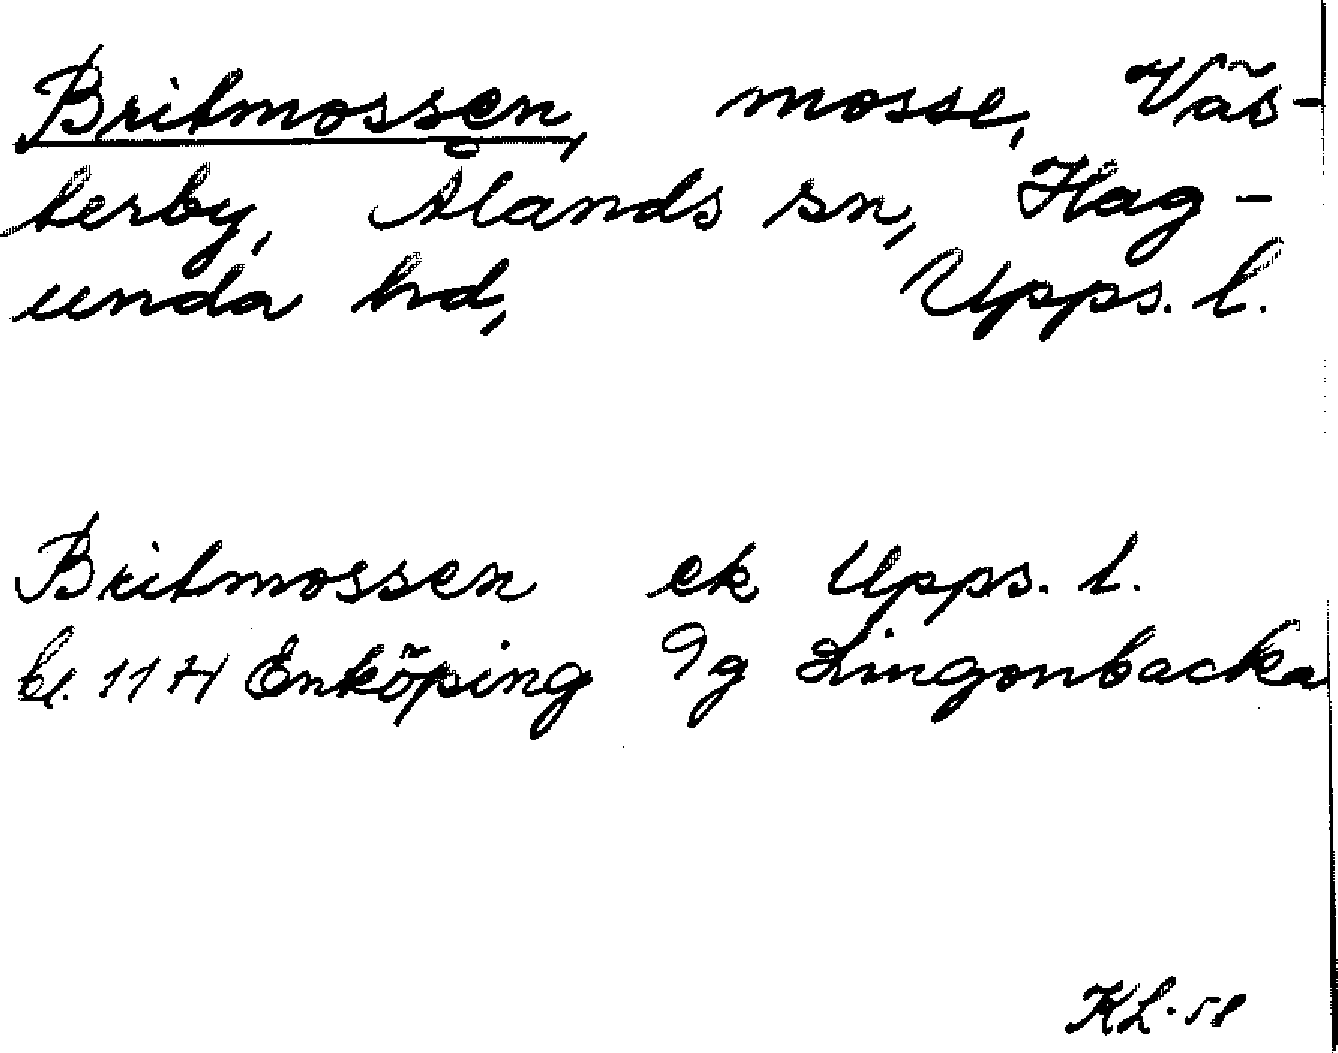 Britmossen, mosse, Väs-
terby, Ålands sn, Hag-
unda hd, Upps. l.
Britmossen ek Upps. l.
bl. 11 H Enköping 9g Lingonbacka
KL. 58